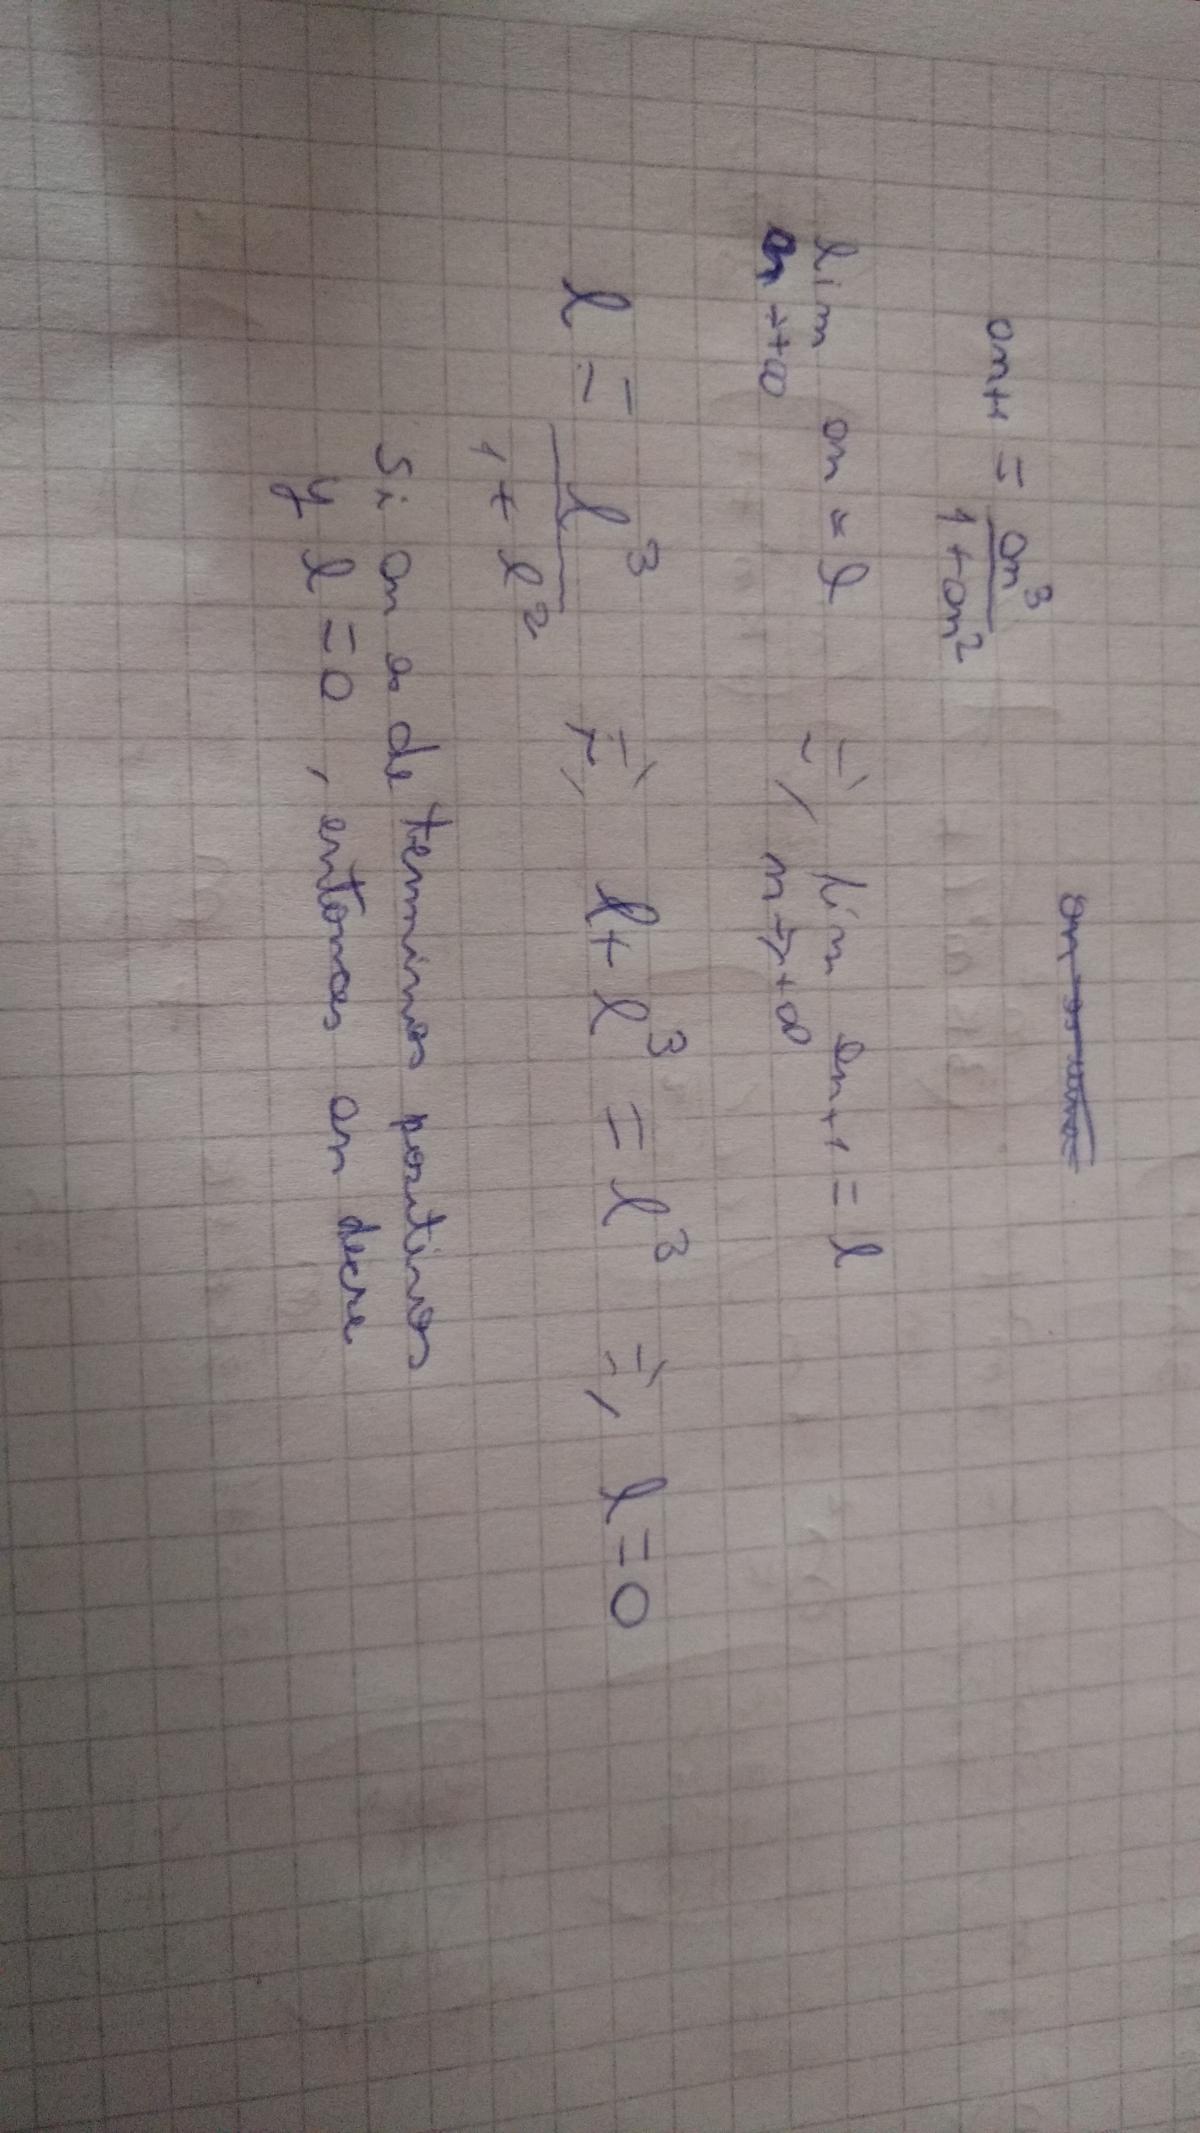 an+1 = an³/(1+an²)
lim n→+∞ an = l ⇒ lim n→+∞ an+1 = l
l = l³/(1+l²) ⇒ l + l³ = l³ ⇒ l = 0
Si an es de terminos positivos
y l = 0, entonces an decre